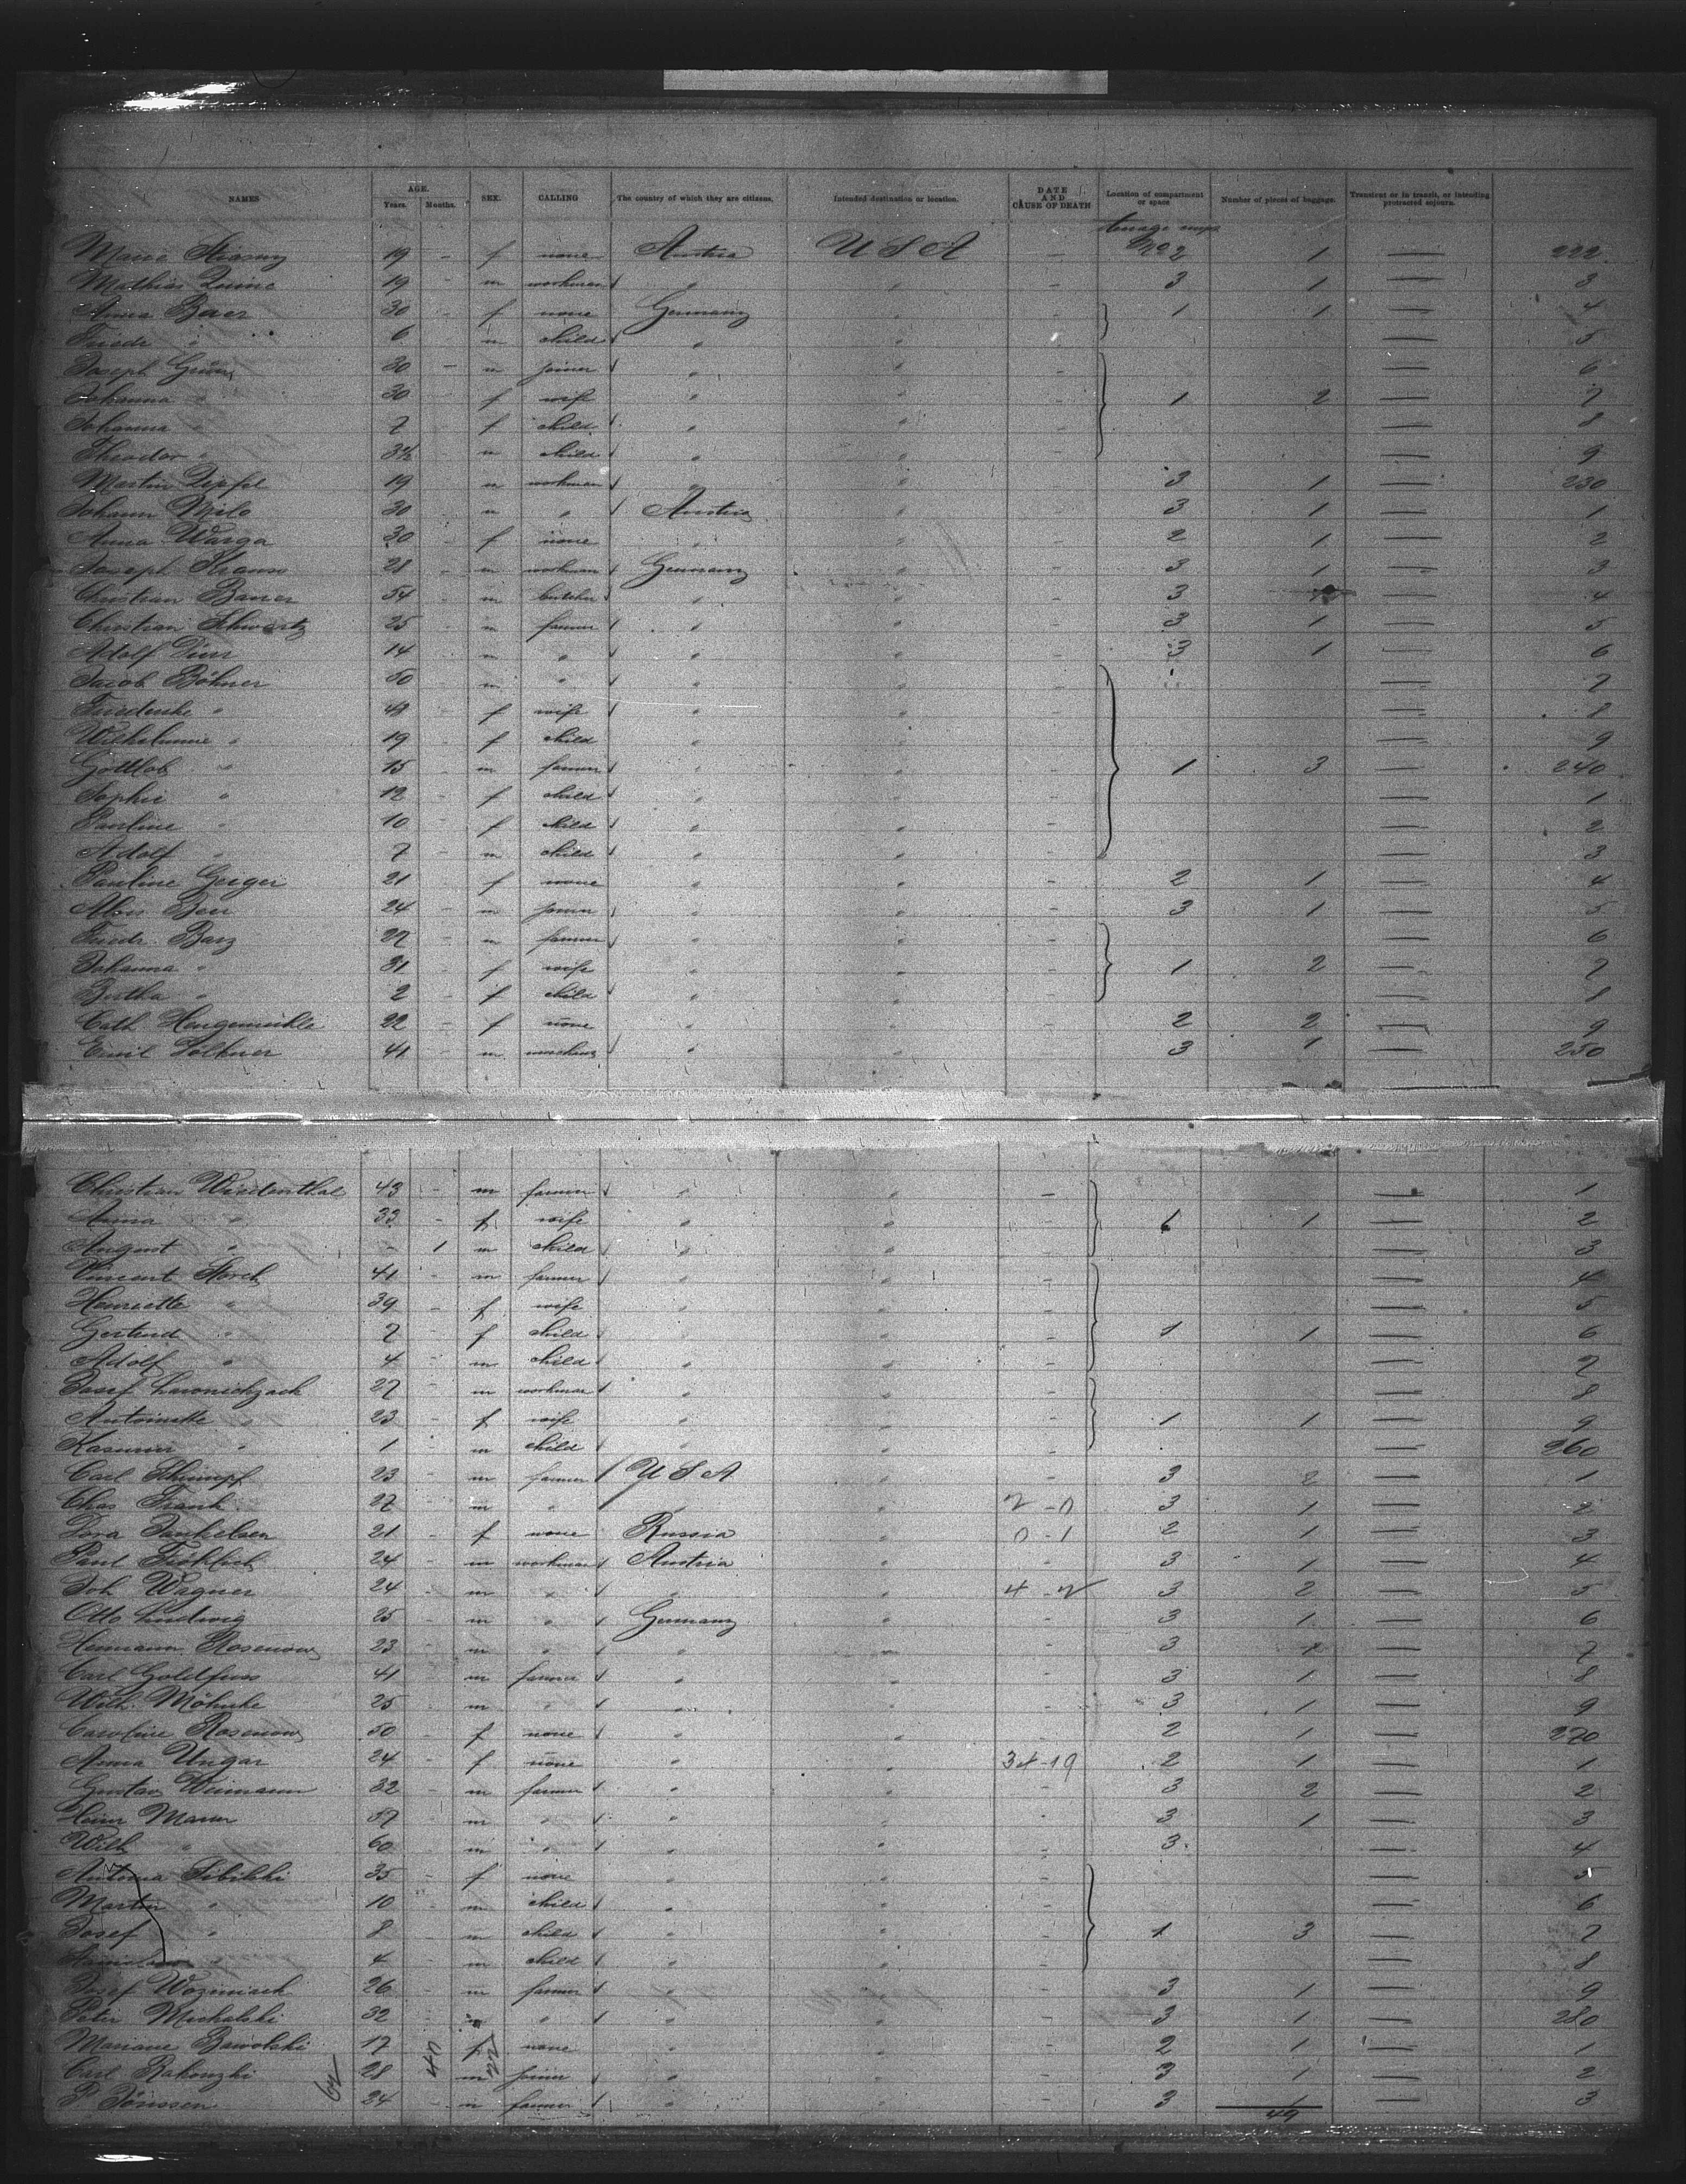 NAMES AGE. Years. Months. SEX. CALLING The country of which they are citizens. Intended destination or location. DATE AND CAUSE OF DEATH Location of compartment or space Number of pieces of baggage. Transient or in transit, or intending protracted sojourn.
19 - f none Austria U S A - No 2 1 — 222
Mathias 19 - m workman " " - 3 1 — 3
Anna Baer 30 - f none Germany " - 1 1 — 4
Friedr " 6 m child " " - — 5
Joseph Grün 30 - m joiner " " - — 6
Johanna " 30 f wife " " - 1 2 — 7
Johanna " 7 f child " " - — 8
Theodor " m child " " - — 9
Martin Zipfel 19 m workman " " 3 1 — 230
Johann Milo 30 m " Austria " 3 1 — 1
Anna Warga 30 f none " " - 2 1 — 2
Joseph Strauss 28 m workman Germany " 3 1 — 3
Christian Bauer 54 m butcher " " - 3 — 4
Christian Schwartz 25 m farmer " " 3 1 — 5
Adolf Dürr 14 m " " " 3 1 — 6
Jacob Böhner 50 m " " " — 7
Friederike " f wife " " — 8
Wilhelmine " 19 f child " " — 9
Gottlob " 15 m farmer " " 1 3 — 240
Sophie " 12 f child " " — 1
Pauline " 10 f child " " - — 2
Adolf " 7 - m child " " — 3
Pauline Geiger 21 f none " " - 2 1 — 4
24 - m joiner " " - 3 1 — 5
Friedr. Barz 27 - m farmer " " - — 6
Johanna " 31 f wife " " - 1 2 — 7
Bertha " 2 - f child " " - — 8
Cath Hengemühle 22 - f none " " - 2 2 — 9
Emil Völkner 41 m " " 3 1 — 250
Christian Wiedenthal 43 - m farmer " " - — 1
Anna " 33 - f wife " " - 1 1 — 2
August " - 1 m child " " - — 3
Vincent Storch 41 - m farmer " " - — 4
Henriette " 39 - f wife " " - — 5
Gertrud " 7 - f child " " - 1 1 — 6
Adolf " 4 - m child " " - — 7
Josef 27 - m workman " " - — 8
Antoinette 23 - f wife " " - 1 1 — 9
Kasimir " 1 - m child " " - — 260
Carl Schimpf 23 - m farmer U S A " - 3 2 — 1
Chas Frank 27 m " " " 3 1 — 2
Dora Jankelsen 21 - f none Russia " 0 - 1 2 1 — 3
Paul Fröhlich 24 - m workman Austria " - 3 1 — 4
Joh Wagner 24 - m " " " 3 2 — 5
Otto Ludwig 25 - m " Germany " - 3 1 — 6
Hermann Rosenow 23 - m " " " - 3 — 7
Carl Goldfuss 41 m farmer " " - 3 1 — 8
Wilh. Möhnke 25 - m " " " - 3 1 — 9
Caroline Rosenow 50 - f none " " - 2 1 — 270
Anna Ungar 24 - f none " " 34-19 2 1 — 1
Gustav Weimann 32 - m farmer " " - 3 2 — 2
37 - m " " " - 3 1 — 3
Wilh " 60 m " " " - 3 — 4
Antonia 35 - f none " " - — 5
Martin " 10 - m child " " - — 6
Josef " 8 m child " " - 1 3 — 7
4 - m child " " - — 8
Josef Wozniack 26 - m farmer " " - 3 1 — 9
Peter Michalski 32 - m " " " - 3 1 — 280
Mariane 17 f none " " - 2 1 — 1
Carl 28 m joiner " " - 3 1 — 2
P Jönssen 24 - m farmer " " - 3 1 — 3
49